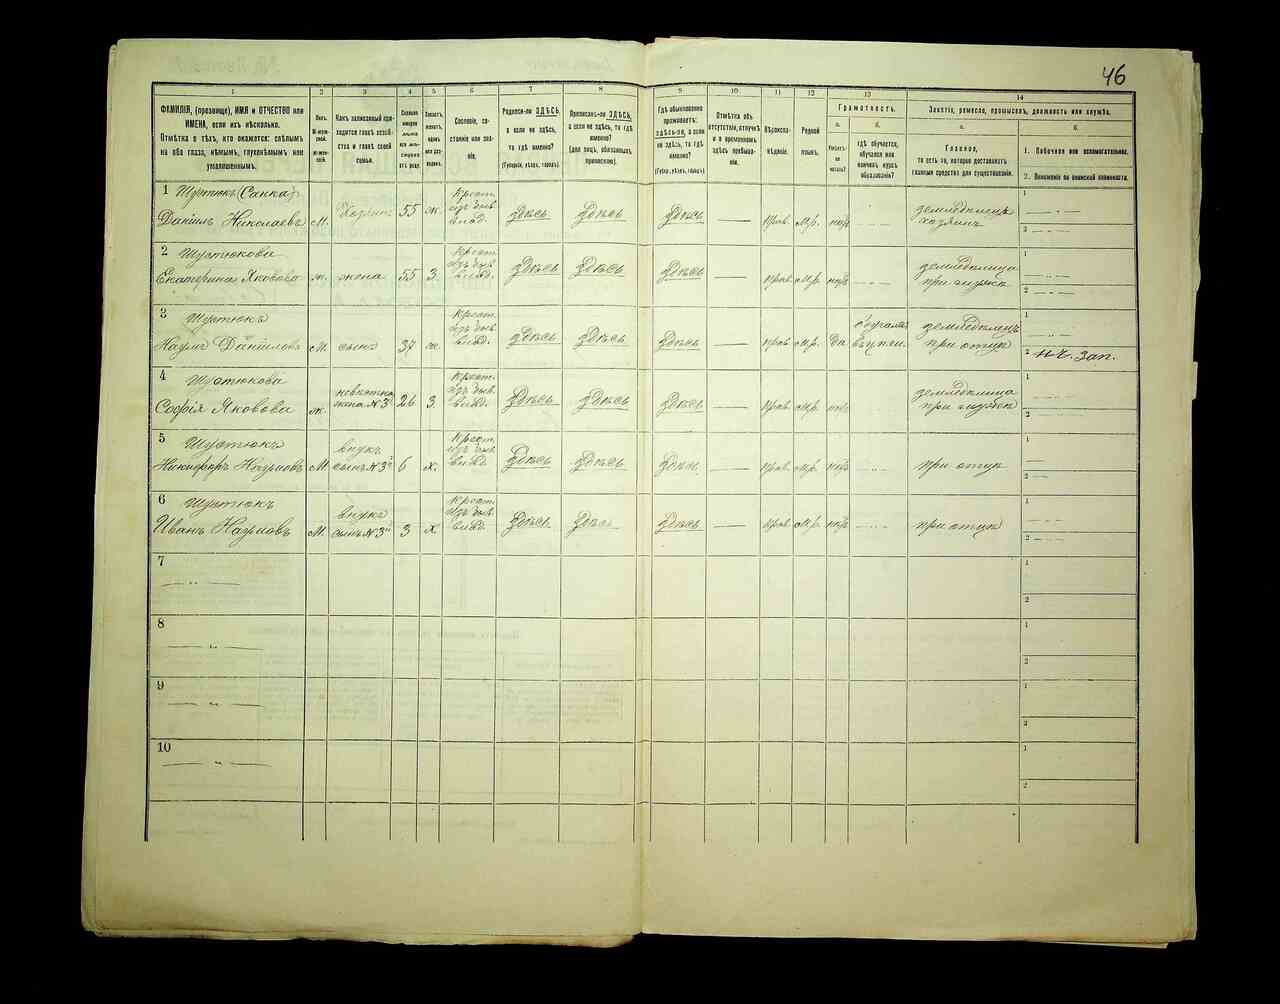 46
1 2 3 4 5 6 7 8 9 10 11 12 13 14
ФАМИЛІЯ, (прозвище), ИМЯ и ОТЧЕСТВО или
ИМЕНА, если ихъ нѣсколько.
Отмѣтка о тѣхъ, кто окажется: слѣпымъ
на оба глаза, нѣмымъ, глухонѣмымъ или
умалишеннымъ.
Полъ.
М-мужской.
Ж-женскій.
Какъ записанный приходится главѣ хозяйства и главѣ своей семьи.
Сословіе, состояніе или званіе.
Родился-ли ЗДѢСЬ,
а если не здѣсь,
то гдѣ именно?
(Губернія, уѣздъ, городъ).
Приписанъ-ли ЗДѢСЬ,
а если не здѣсь, то гдѣ
именно?
(для лицъ, обязанныхъ
припискою).
Гдѣ обыкновенно
проживаетъ:
ЗДѢСЬ-ли, а если
не здѣсь, то гдѣ
именно?
(Губер., уѣздъ, городъ).
Отмѣтка объ
отсутствіи, отлучкѣ
и о временномъ
здѣсь пребываніи.
Вѣроисповѣданіе.
Родной языкъ.
Грамотность.
а. б.
Умѣетъ-ли читать?
гдѣ обучается,
обучался или
кончилъ курсъ
образованія?
Занятіе, ремесло, промыселъ, должность или служба.
а. б.
Главное,
то есть то, которое доставляетъ
главныя средства для существованія.
1. Побочное или вспомогательное.
2. Положеніе по воинской повинности.
1 Шустюкъ (Санка)
Даніилъ Николаевъ М. Хозяинъ 55 ж. Крест. изъ быв. влад. Здѣсь Здѣсь Здѣсь — прав. мр. нѣтъ земледѣлецъ хозяинъ
2 Шустюкова
Екатерина Яковова ж. жена 55 З. Крест. изъ быв. влад. Здѣсь Здѣсь Здѣсь — прав. мр. нѣтъ земледѣлица при мужѣ
3 Шустюкъ
Наумъ Даніиловъ М. сынъ 37 ж. Крест. изъ быв. влад. Здѣсь Здѣсь Здѣсь — прав. мр. да земледѣлецъ при отцѣ
2 н.ч. зап.
4 Шустюкова
Софія Яковова ж. невѣстка жена №3 26 З. Крест. изъ быв. влад. Здѣсь Здѣсь Здѣсь — прав. мр. нѣтъ земледѣлица при мужѣ
5 Шустюкъ
Никифоръ Наумовъ М. внукъ сынъ №3 6 х. Крест. изъ быв. влад. Здѣсь Здѣсь Здѣсь — прав. мр. нѣтъ при отцѣ
6 Шустюкъ
Иванъ Наумовъ М. внукъ сынъ №3 3 х. Крест. изъ быв. влад. Здѣсь Здѣсь Здѣсь — прав. мр. нѣтъ при отцѣ
7
8
9
10